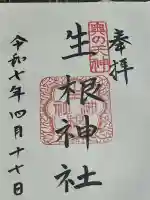 奉拝
奥の天神
生根神社
令和七年四月十七日